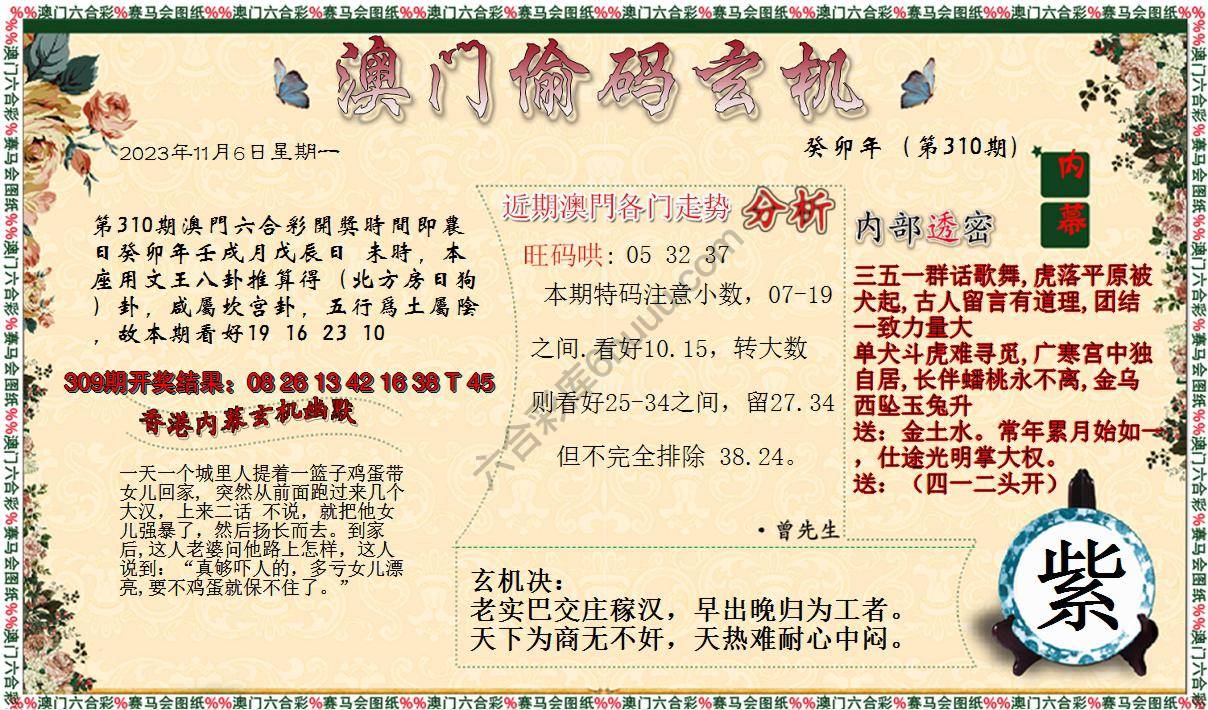 %%澳门六合彩%赛马会图纸%%澳门六合彩%赛马会图纸%%澳门六合彩%赛马会图纸%%澳门六合彩%赛马会图纸%%澳门六合彩%赛马会图纸%%澳门六合彩%赛马会图纸%%
澳门偷码玄机
2023年11月6日星期一
癸卯年（第310期）
内幕
第310期澳門六合彩開獎時間即農
日癸卯年壬戌月戊辰日 未時，本
座用文王八卦推算得（北方房日狗
）卦，咸屬坎宫卦，五行爲土屬陰
，故本期看好19 16 23 10
309期开奖结果：08 26 13 42 16 38 T 45
香港内幕玄机幽默
一天一个城里人提着一篮子鸡蛋带
女儿回家, 突然从前面跑过来几个
大汉，上来二话 不说，就把他女
儿强暴了，然后扬长而去。到家
后,这人老婆问他路上怎样，这人
说到：“真够吓人的，多亏女儿漂
亮,要不鸡蛋就保不住了。”
近期澳門各门走势 分析
旺码哄: 05 32 37
本期特码注意小数，07-19
之间.看好10.15，转大数
则看好25-34之间，留27.34
但不完全排除 38.24。
·曾先生
内部透密
三五一群话歌舞,虎落平原被
犬起,古人留言有道理,团结
一致力量大
单犬斗虎难寻觅,广寒宫中独
自居,长伴蟠桃永不离,金乌
西坠玉兔升
送：金土水。常年累月始如一
，仕途光明掌大权。
送：（四一二头开）
玄机决：
老实巴交庄稼汉，早出晚归为工者。
天下为商无不奸，天热难耐心中闷。
紫